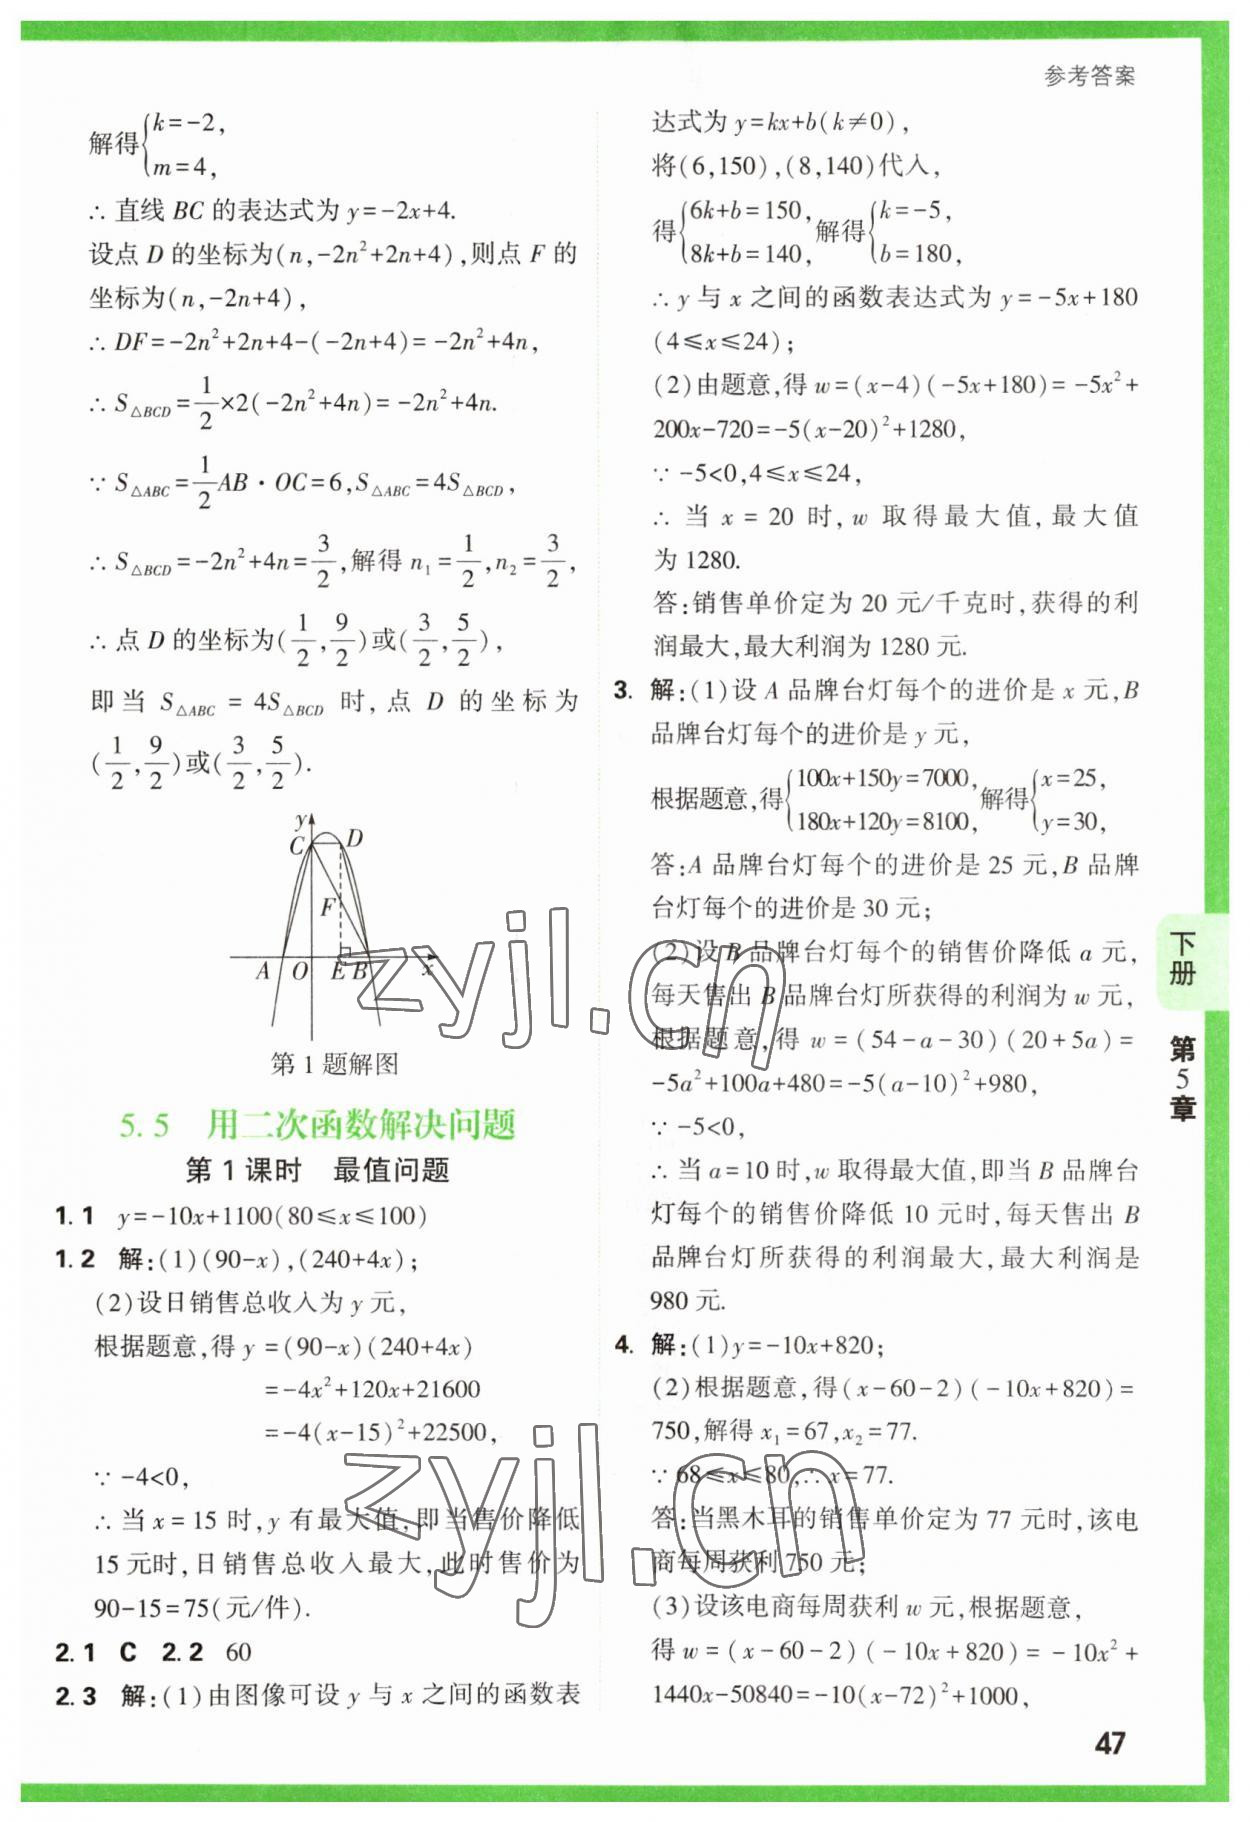 参考答案
解得{k=-2,
m=4,
∴直线 BC 的表达式为 y=-2x+4.
设点 D 的坐标为(n,-2n²+2n+4),则点 F 的
坐标为(n,-2n+4),
∴DF=-2n²+2n+4-(-2n+4)=-2n²+4n,
∴S△BCD=1/2×2(-2n²+4n)=-2n²+4n.
∵S△ABC=1/2AB·OC=6,S△ABC=4S△BCD,
∴S△BCD=-2n²+4n=3/2,解得 n₁=1/2,n₂=3/2,
∴点 D 的坐标为(1/2,9/2)或(3/2,5/2),
即当 S△ABC = 4S△BCD 时,点 D 的坐标为
(1/2,9/2)或(3/2,5/2).
y
C
D
F
A
O
E
B
x
第 1 题解图
5.5 用二次函数解决问题
第 1 课时 最值问题
1.1 y=-10x+1100(80≤x≤100)
1.2 解:(1)(90-x),(240+4x);
(2)设日销售总收入为 y 元,
根据题意,得 y =(90-x)(240+4x)
=-4x²+120x+21600
=-4(x-15)²+22500,
∵-4<0,
∴当 x=15 时,y 有最大值,即当售价降低
15 元时,日销售总收入最大,此时售价为
90-15=75(元/件).
2.1 C 2.2 60
2.3 解:(1)由图像可设 y 与 x 之间的函数表
达式为 y=kx+b(k≠0),
将(6,150),(8,140)代入,
得{6k+b=150,
8k+b=140,
解得{k=-5,
b=180,
∴y 与 x 之间的函数表达式为 y=-5x+180
(4≤x≤24);
(2)由题意,得 w=(x-4)(-5x+180)=-5x²+
200x-720=-5(x-20)²+1280,
∵-5<0,4≤x≤24,
∴当 x=20 时,w 取得最大值,最大值
为 1280.
答:销售单价定为 20 元/千克时,获得的利
润最大,最大利润为 1280 元.
3. 解:(1)设 A 品牌台灯每个的进价是 x 元,B
品牌台灯每个的进价是 y 元,
根据题意,得{100x+150y=7000,
180x+120y=8100,
解得{x=25,
y=30,
答:A 品牌台灯每个的进价是 25 元,B 品牌
台灯每个的进价是 30 元;
(2)设 B 品牌台灯每个的销售价降低 a 元,
每天售出 B 品牌台灯所获得的利润为 w 元,
根据题意,得 w=(54-a-30)(20+5a)=
-5a²+100a+480=-5(a-10)²+980,
∵-5<0,
∴当 a=10 时,w 取得最大值,即当 B 品牌台
灯每个的销售价降低 10 元时,每天售出 B
品牌台灯所获得的利润最大,最大利润是
980 元.
4. 解:(1)y=-10x+820;
(2)根据题意,得(x-60-2)(-10x+820)=
750,解得 x₁=67,x₂=77.
∵68≤x≤80,∴x=77.
答:当黑木耳的销售单价定为 77 元时,该电
商每周获利 750 元;
(3)设该电商每周获利 w 元,根据题意,
得 w=(x-60-2)(-10x+820)=-10x²+
1440x-50840=-10(x-72)²+1000,
下册
第5章
47
zyjl.cn
zyjl.cn